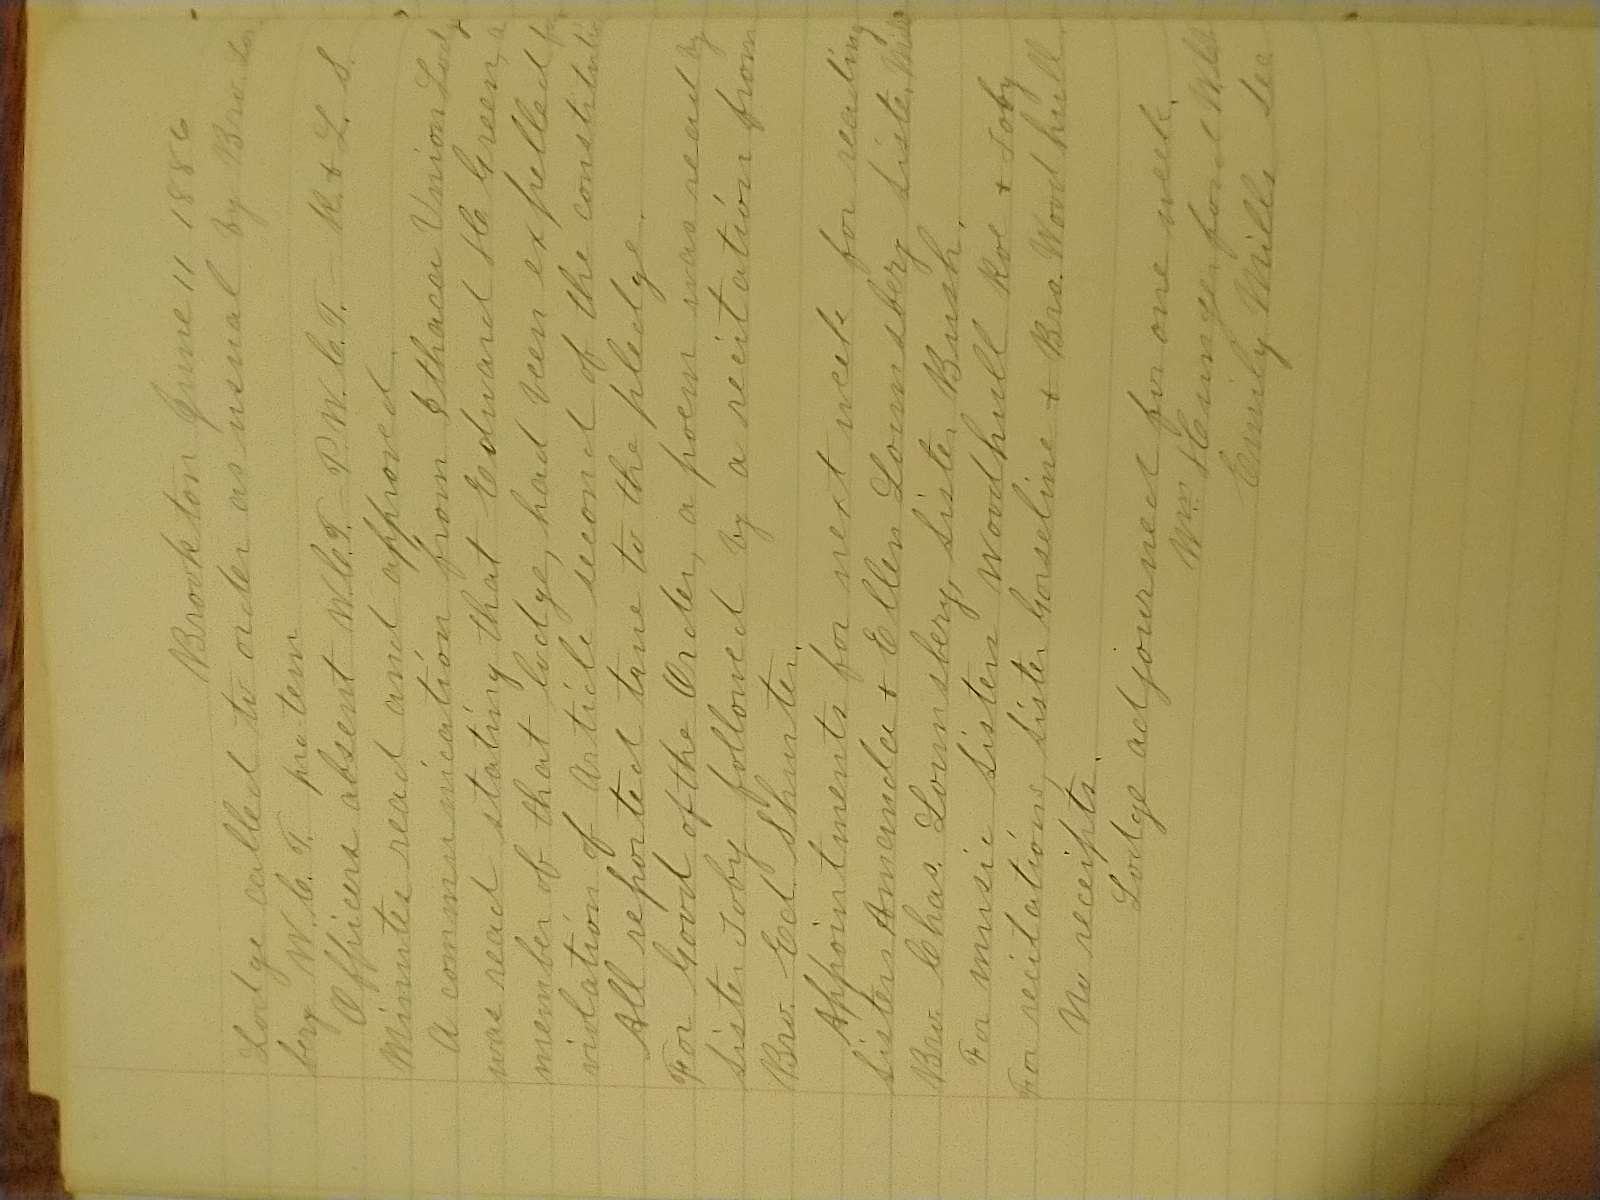 Brookton June 11 1886
Lodge called to order as usual by Bro. Lou
bery W.C.T. pro tem
Officers absent W.C.T. - P.W.C.T. - R. + L. S.
Minutes read and approved.
A communication from Ithaca Union Lodge
was read stating that Edward H. Green, a
member of that lodge, had been expelled for
violation of Article second of the constitution
All reported true to the pledge.
For Good of the Order, a poem was read by
Sister Toby followed by a recitation from
Bro. Ed. Shurter.
Appointments for next week for reading
Sisters Amanda + Ellen Lounsbery Sister Mills
Bro. Chas. Lounsbery, Sister Bush.
For music Sisters Woodhull Roe + Toby
For recitations, Sister Gorseline + Bro. Woodhull.
No receipts.
Lodge adjourned for one week.
Wm. Hungerford W.C.T.
Emily Mills Sec